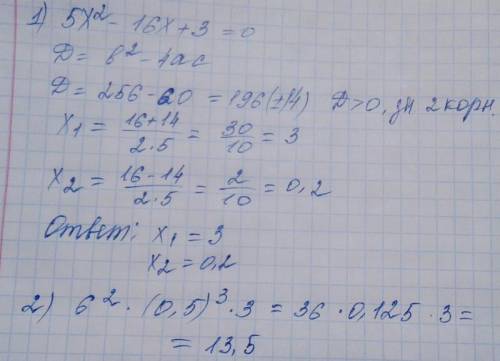 1) 5x² - 16x + 3 = 0
D = b² - 4ac
D = 256 - 60 = 196 (±14) D > 0, зн. 2 корн.
x₁ = (16+14)/(2·5) = 30/10 = 3
x₂ = (16-14)/(2·5) = 2/10 = 0,2
Ответ: x₁ = 3
x₂ = 0,2
2) 6² · (0,5)³ · 3 = 36 · 0,125 · 3 =
= 13,5